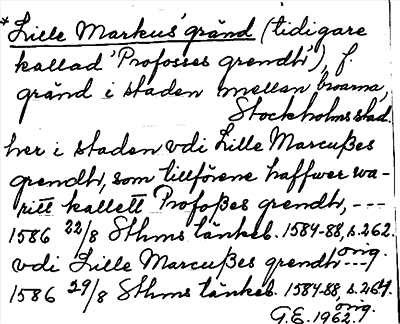 *Lille Markus' gränd (tidigare
kallad 'Profosses grendh'), f.
gränd i staden mellan broarna,
Stockholms stad.
her i staden vdi Lille Marcußes
grendh, som tillförene haffwer wa-
ritt kallett Profoßes grendh, ---
1586 22/8 Sthms tänkeb. 1584-88, s. 262.
orig.
vdi Lille Marcußes grendh ---
1586 29/8 Sthms tänkeb. 1584-88, s. 264.
orig.
G.E. 1962.